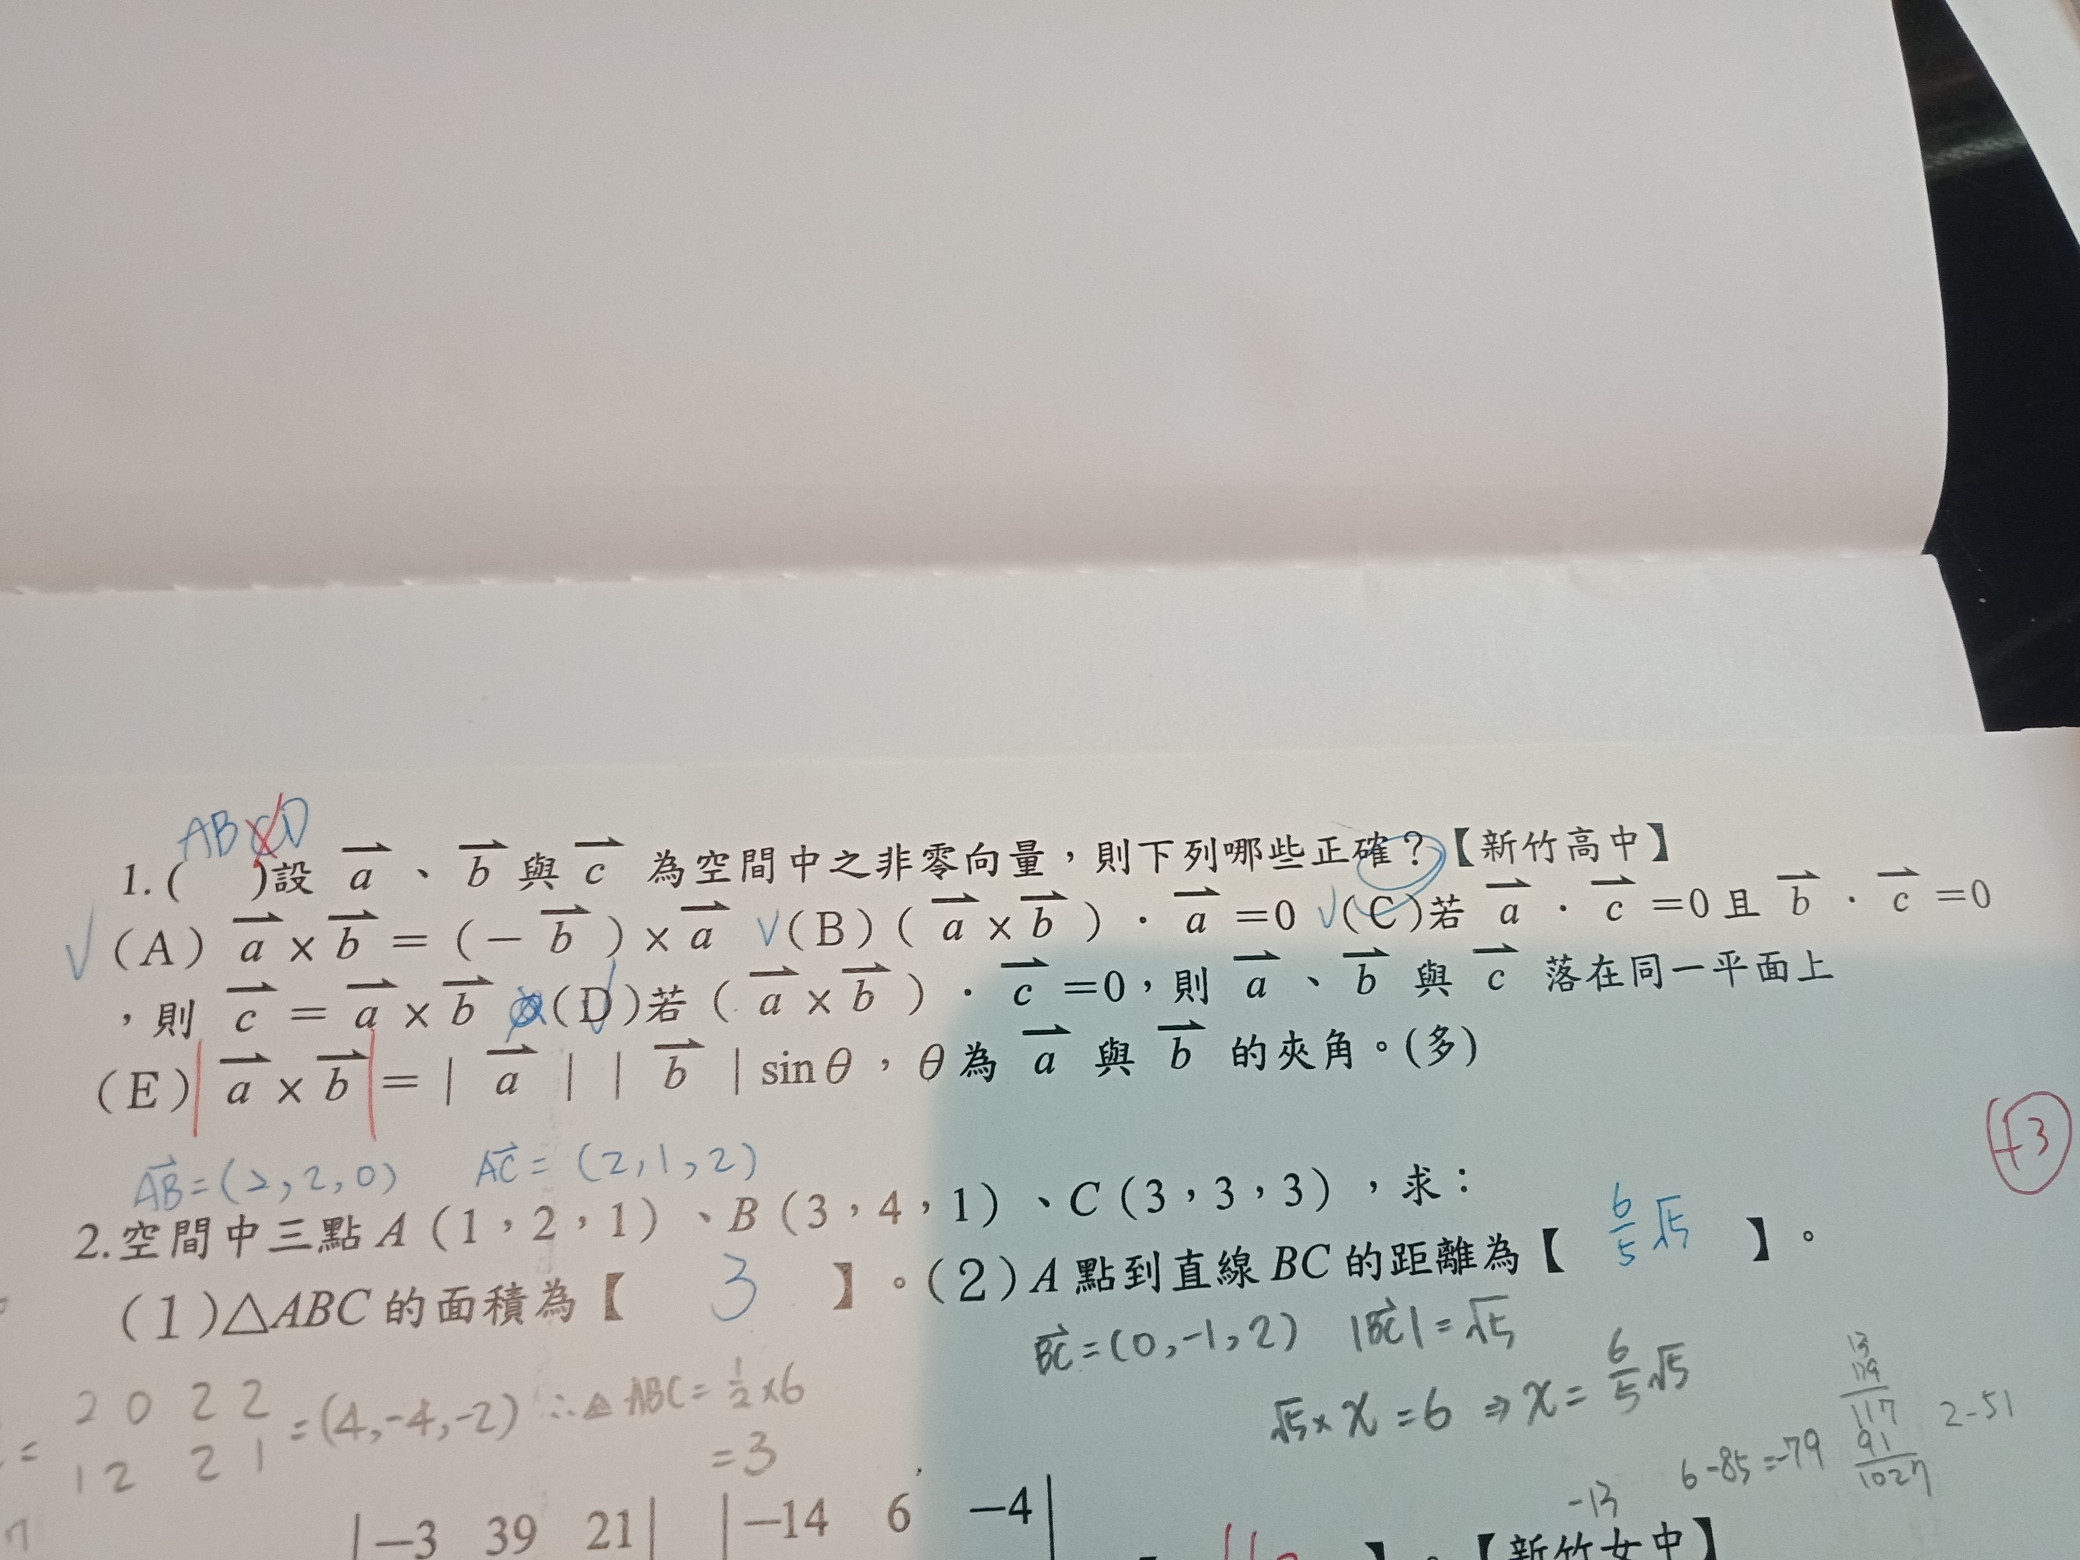 ABCD
1.( )設 a 、 b 與 c 為空間中之非零向量，則下列哪些正確？【新竹高中】
√(A) a × b = (− b ) × a √(B) ( a × b )． a =0 √(C)若 a ． c =0 且 b ． c =0
，則 c = a × b (D)若 ( a × b )． c =0，則 a 、 b 與 c 落在同一平面上
(E)| a × b |=| a || b |sinθ，θ為 a 與 b 的夾角。(多)
+3
AB=(2,2,0) AC=(2,1,2)
2.空間中三點 A (1，2，1)、B (3，4，1)、C (3，3，3)，求：
(1)△ABC 的面積為【 3 】。(2) A 點到直線 BC 的距離為【 6/5 √5 】。
BC=(0,-1,2) |BC|=√5
2 0 2 2
= =(4,-4,-2) ∴△ABC=1/2×6
1 2 2 1
=3
√5×x=6 ⇒ x=6/5 √5
13
79
117
91
1027
2-51
6-85=-79
-13
|−3 39 21| |−14 6 −4|
】。【新竹女中】